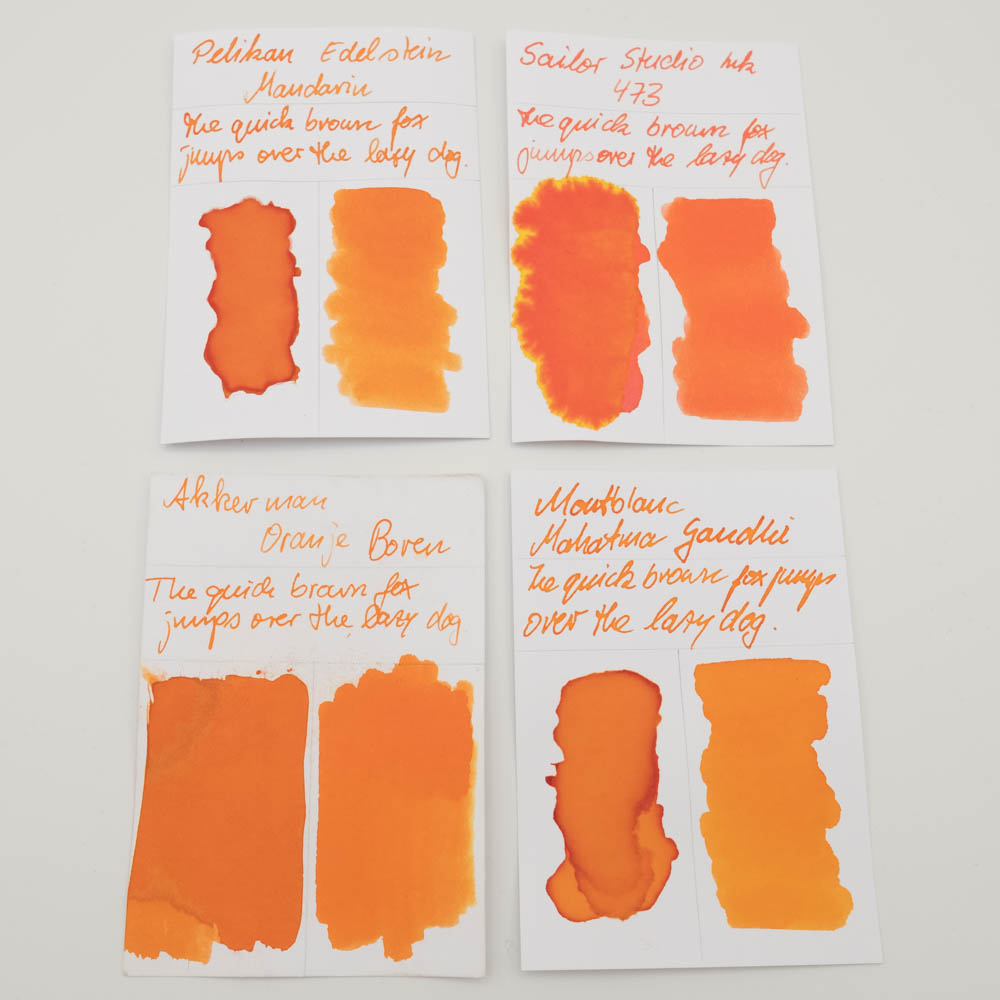 Pelikan Edelstein
Mandarin
The quick brown fox
jumps over the lazy dog.
Sailor Studio ink
473
The quick brown fox
jumps over the lazy dog.
Akkerman
Oranje Boven
The quick brown fox
jumps over the lazy dog
Montblanc
Mahatma Gandhi
The quick brown fox jumps
over the lazy dog.